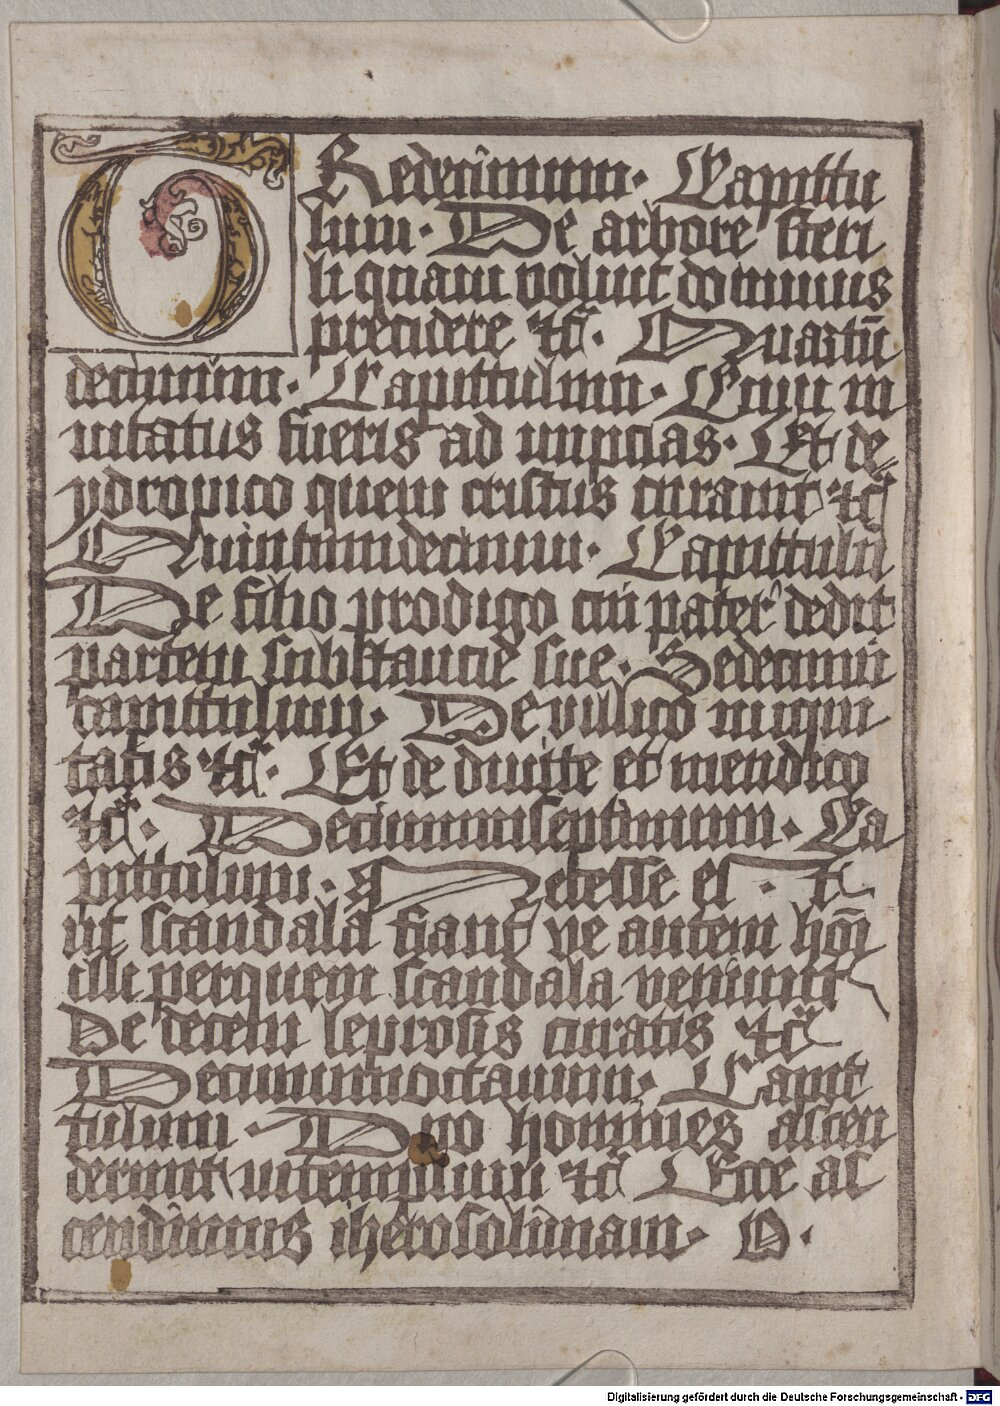 TRedecimum. Capittu
lum. De arbore steri
li quam voluit dominus
precidere tc̄. Quartū
decimum. Capittulum. Cum in
uitatus fueris ad nupcias. Et de
ydropico quem cristus curauit tc̄
Quintumdecimum. Capittulū
De filio prodigo cui pater dedit
partem substancie sue. Sedecimū
capittulum. De villico iniqui
tatis tc̄. Et de diuite et mendico
tc̄. Decimumseptimum. Ca
pittulum. Necesse est
ut scandala fiant ve autem hoī
illi perquem scandala veniunt
De decem leprosis curatis tc̄
Decimumoctauum. Capit
tulum. Duo homines ascen
derunt intemplum tc̄ Ecce as
cendimus iherosolimam.
Digitalisierung gefördert durch die Deutsche Forschungsgemeinschaft - DFG